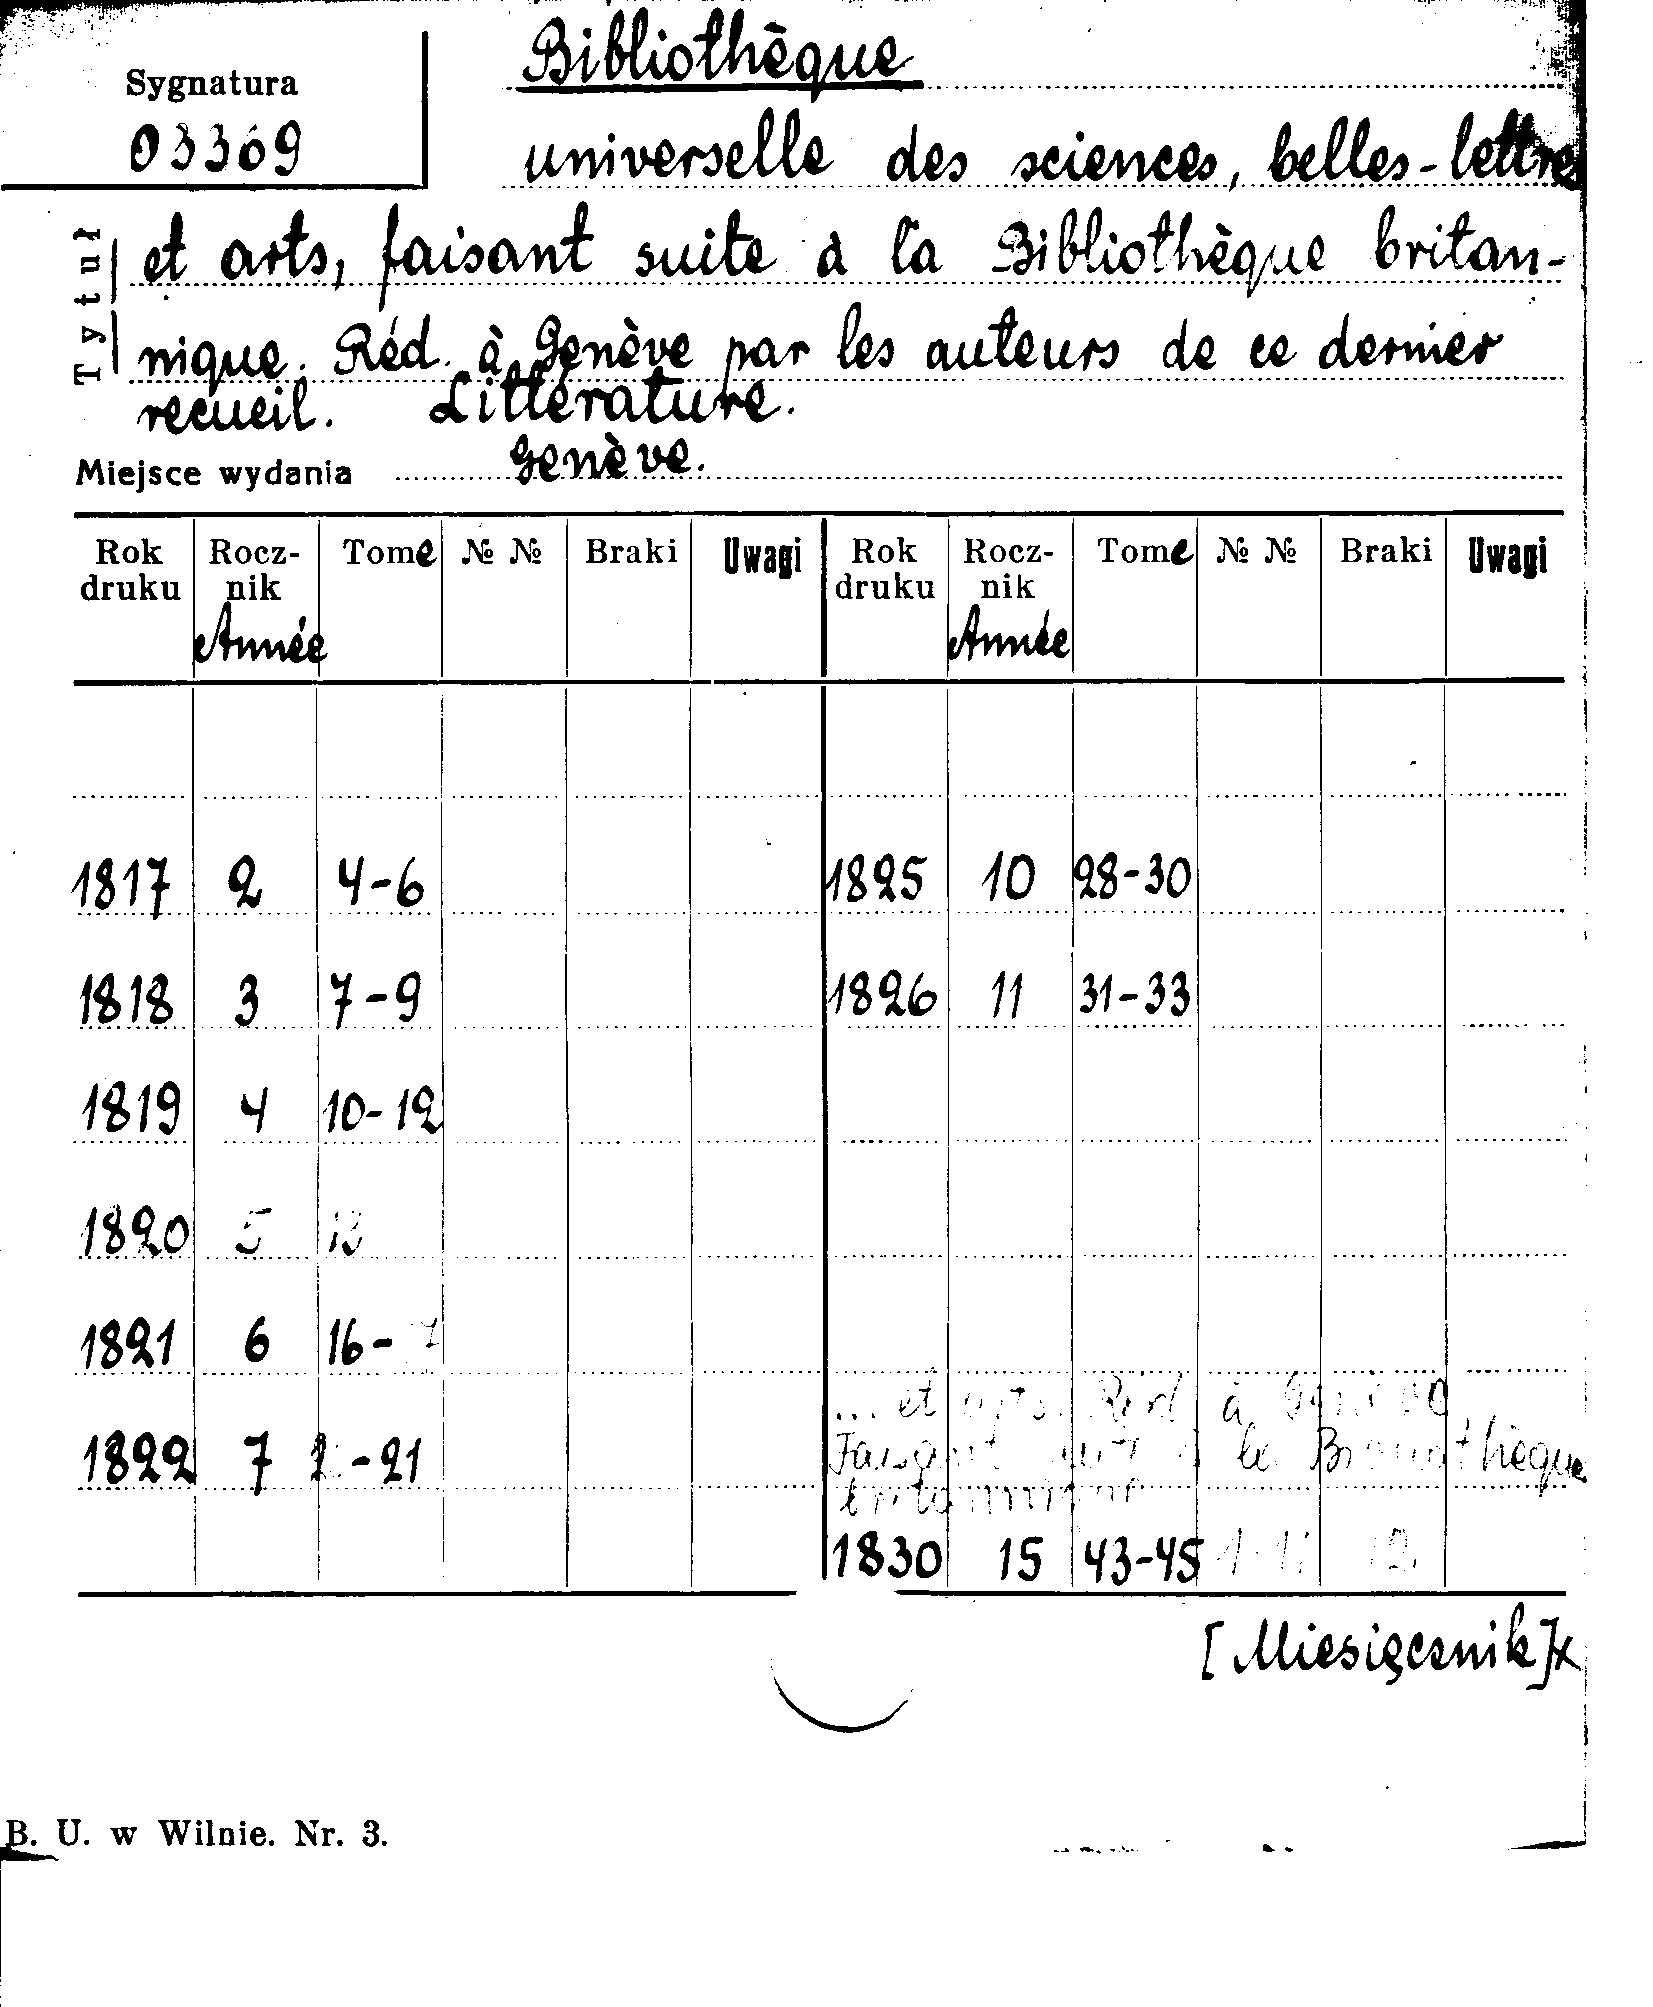 Bibliothèque
Sygnatura
03369
universelle des sciences, belles-lettres
Tytuł
et arts, faisant suite à la Bibliothèque britan-
nique. Réd. à Genève par les auteurs de ce dernier
recueil. Littérature.
Miejsce wydania Genève.
Rok druku Rocznik Année Tome № № Braki Uwagi Rok druku Rocznik Année Tome № № Braki Uwagi
1817 2 4-6 1825 10 28-30
1818 3 7-9 1826 11 31-33
1819 4 10-12
1820 5 13
1821 6 16-
1822 7 -21
... et arts. Réd. à Genève
Faisant suite à la Bibliothèque
britannique
1830 15 43-45
[Miesięcznik]x
B. U. w Wilnie. Nr. 3.